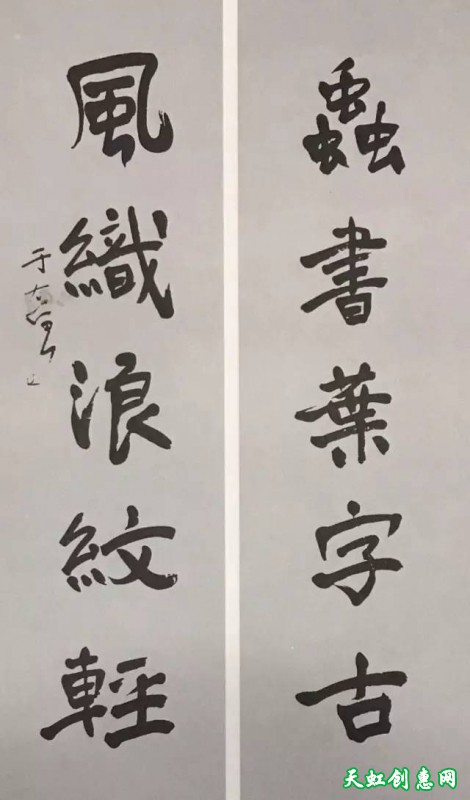 蟲書葉字古
風織浪紋輕
于右
天虹创惠网